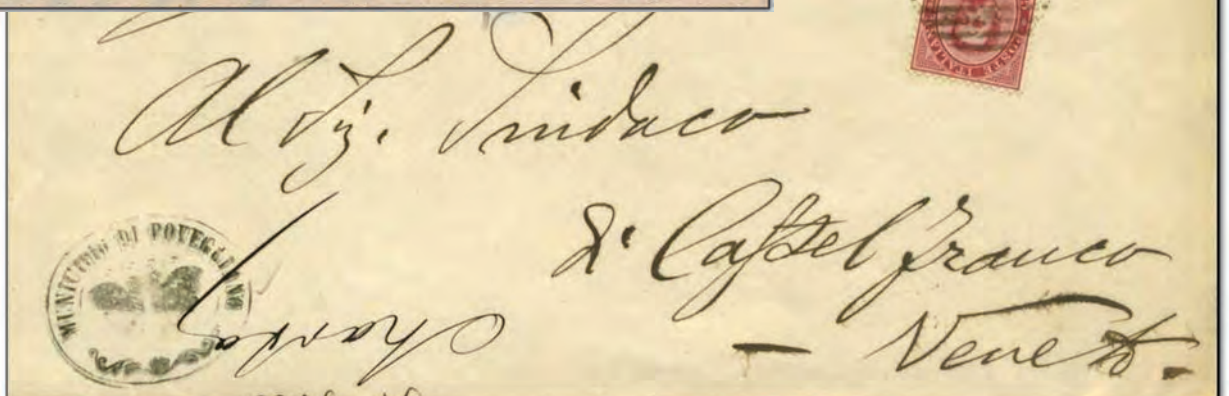 Al Sig. Sindaco
di Castelfranco
Veneto.
MUNICIPIO DI POVEGLIANO